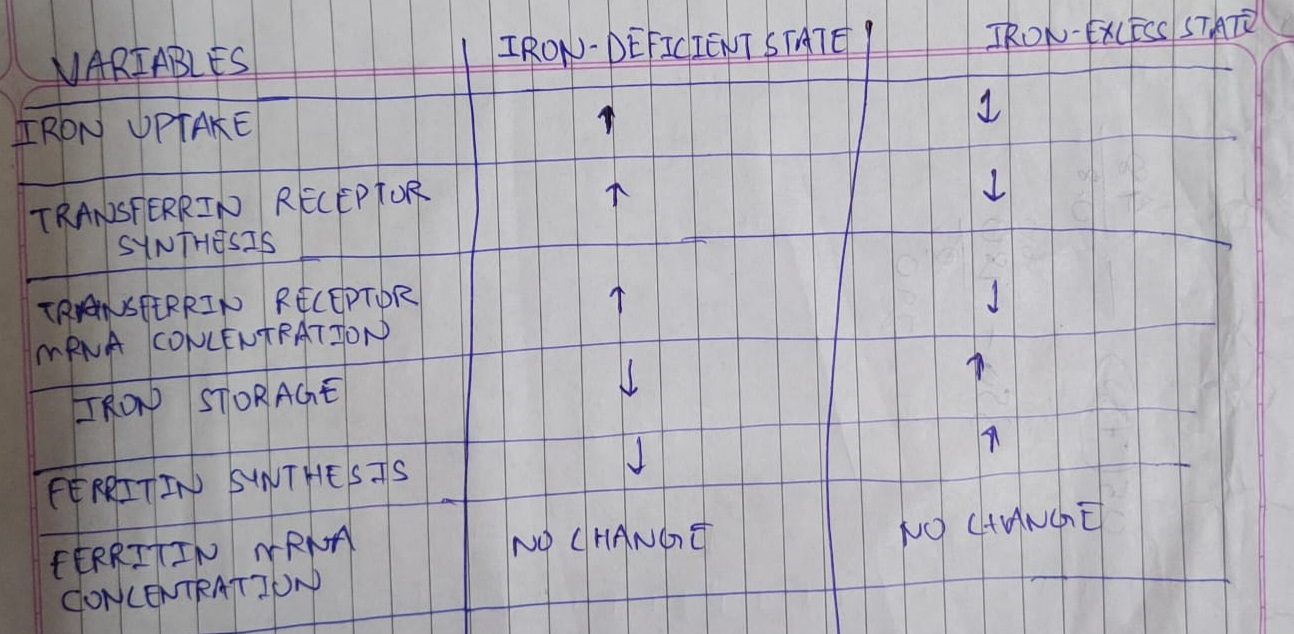 VARIABLES IRON-DEFICIENT STATE IRON-EXCESS STATE
IRON UPTAKE ↑ ↓
TRANSFERRIN RECEPTOR ↑ ↓
SYNTHESIS
TRANSFERRIN RECEPTOR ↑ ↓
mRNA CONCENTRATION
IRON STORAGE ↓ ↑
FERRITIN SYNTHESIS ↓ ↑
FERRITIN mRNA NO CHANGE NO CHANGE
CONCENTRATION